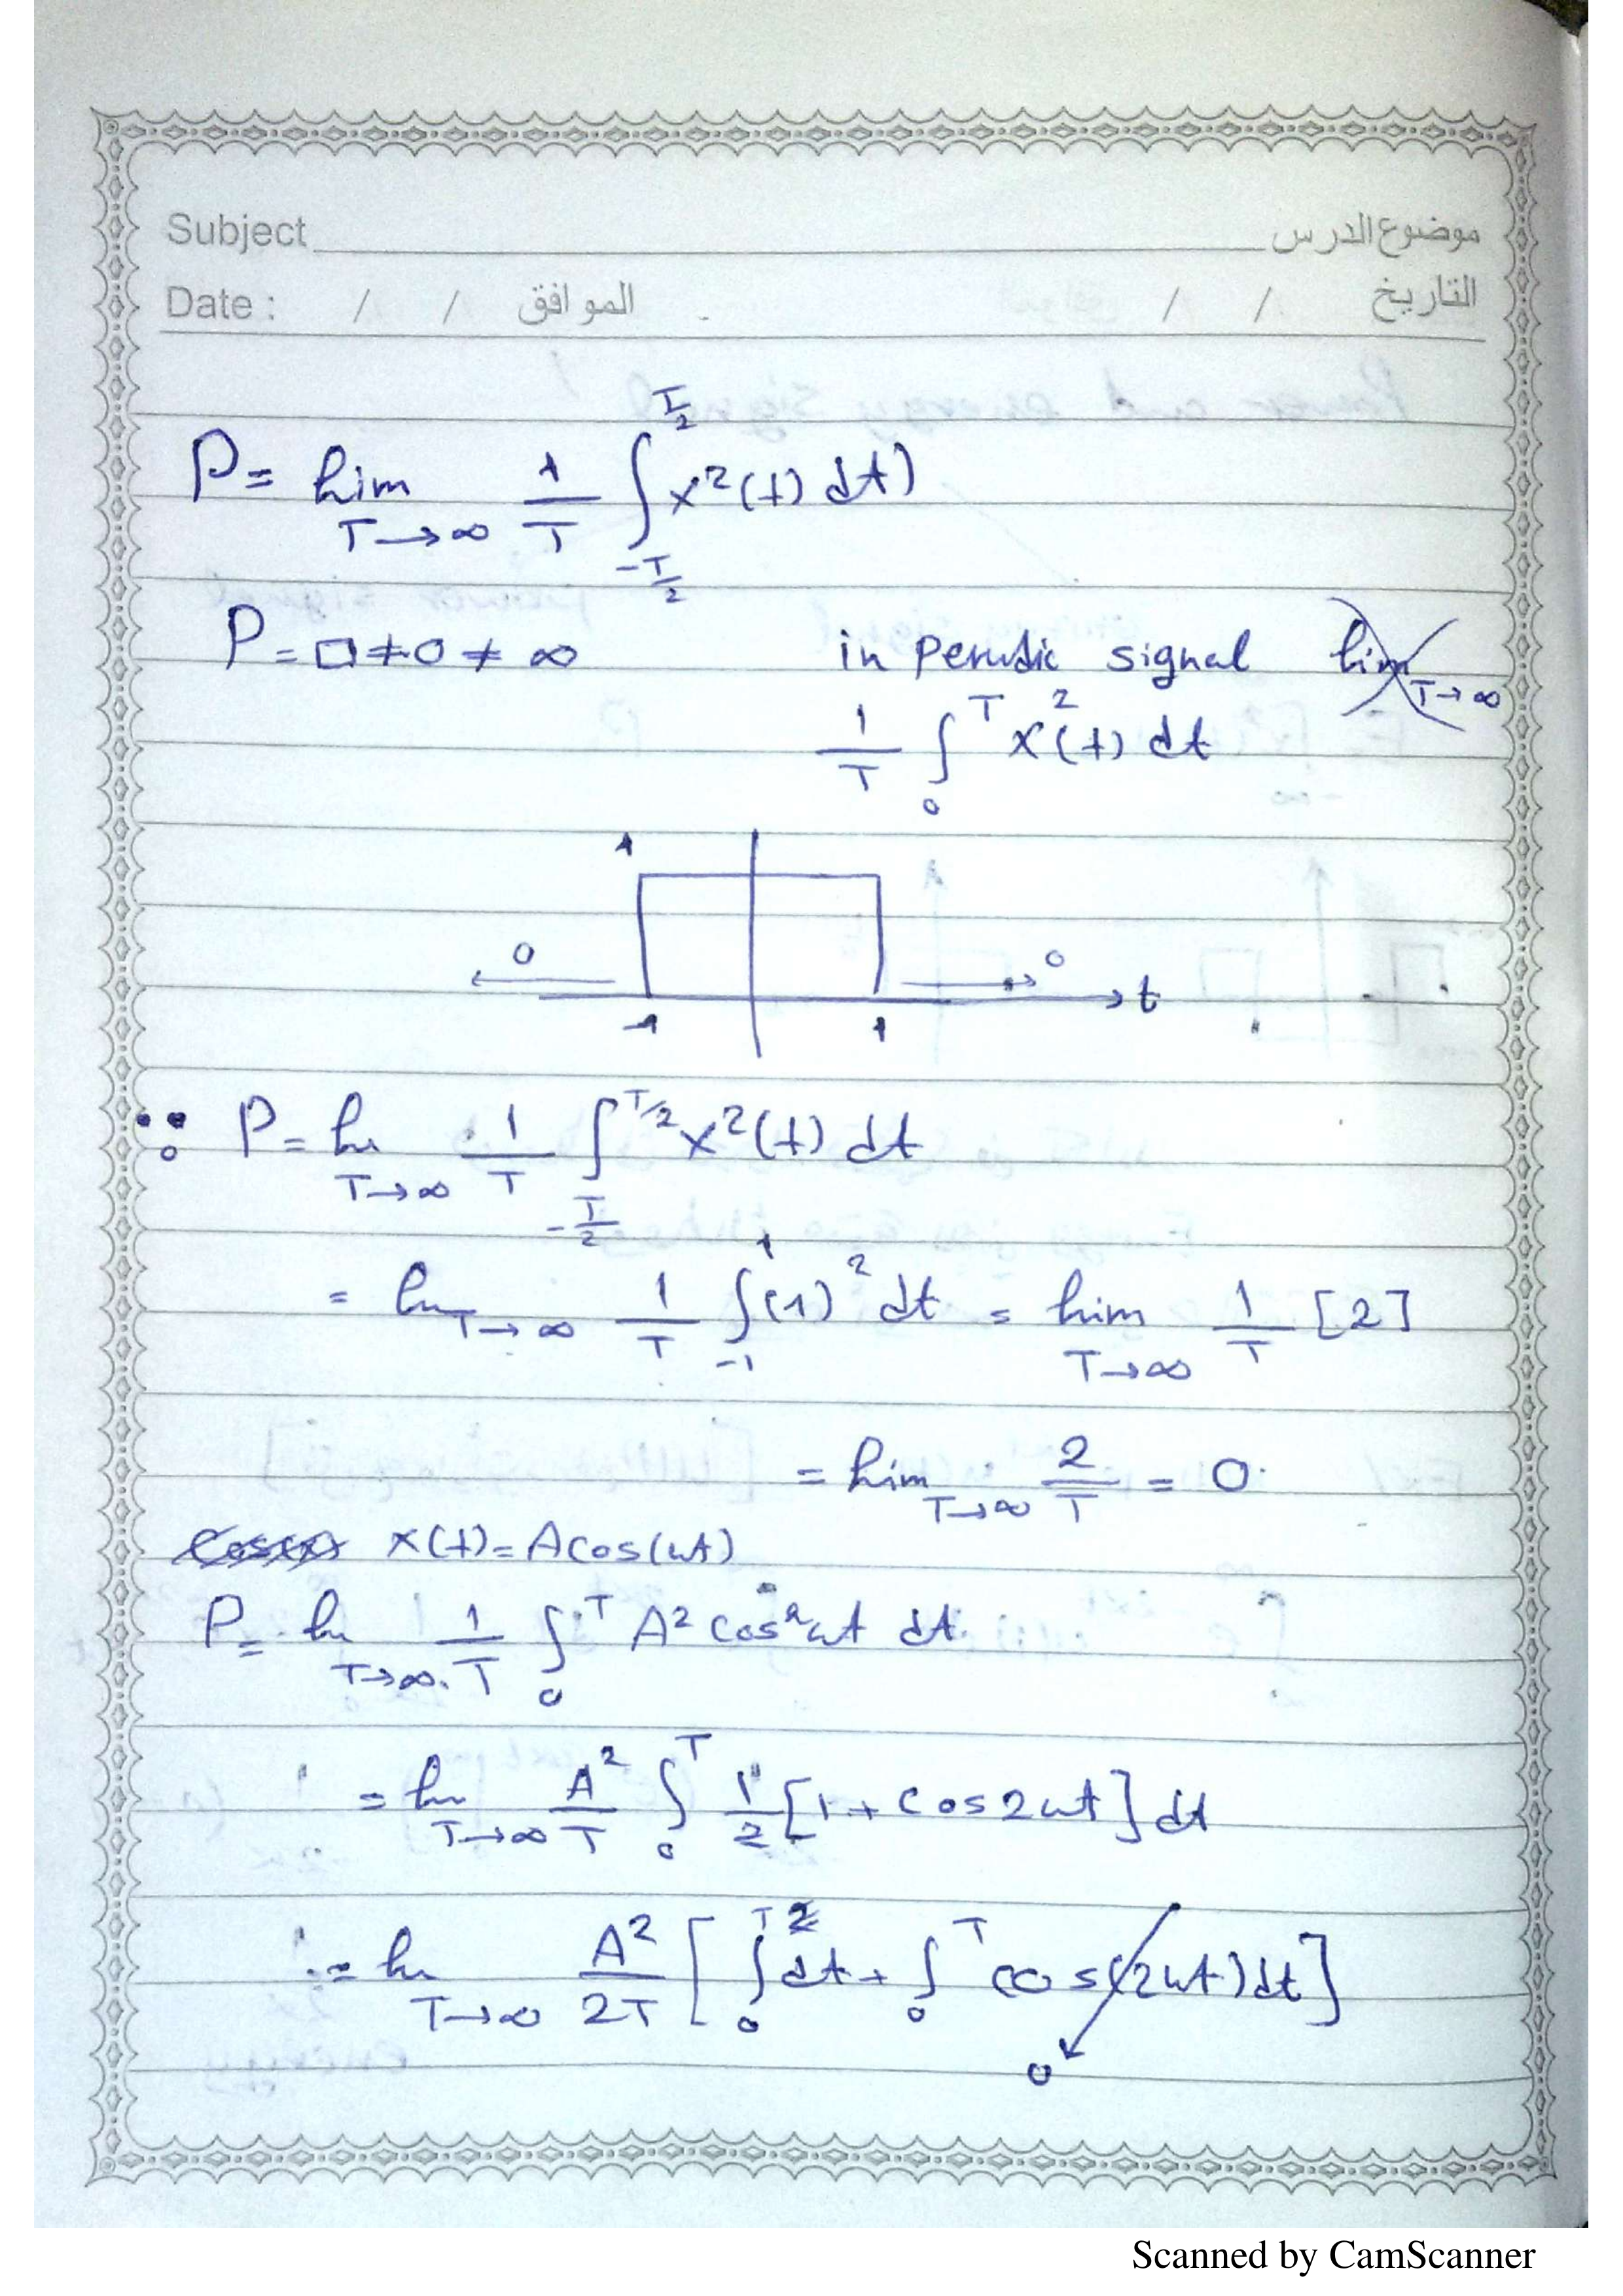 Subject موضوع الدرس
Date : / / الموافق / / التاريخ
P = lim T→∞ 1/T ∫_{-T/2}^{T/2} x²(t) dt)
P = □ ≠ 0 ≠ ∞ in perodic signal lim T→∞
1/T ∫_0^T x²(t) dt
1
0 0
t
-1 1
∵ P = lim T→∞ 1/T ∫_{-T/2}^{T/2} x²(t) dt
= lim T→∞ 1/T ∫_{-1}^{1} (1)² dt = lim T→∞ 1/T [2]
= lim T→∞ 2/T = 0
x(t) = A cos(ωt)
P = lim T→∞ 1/T ∫_0^T A² cos² ωt dt
= lim T→∞ A²/T ∫_0^T 1/2 [1 + cos 2ωt] dt
= lim T→∞ A²/2T [∫_0^T dt + ∫_0^T cos(2ωt) dt]
0
Scanned by CamScanner